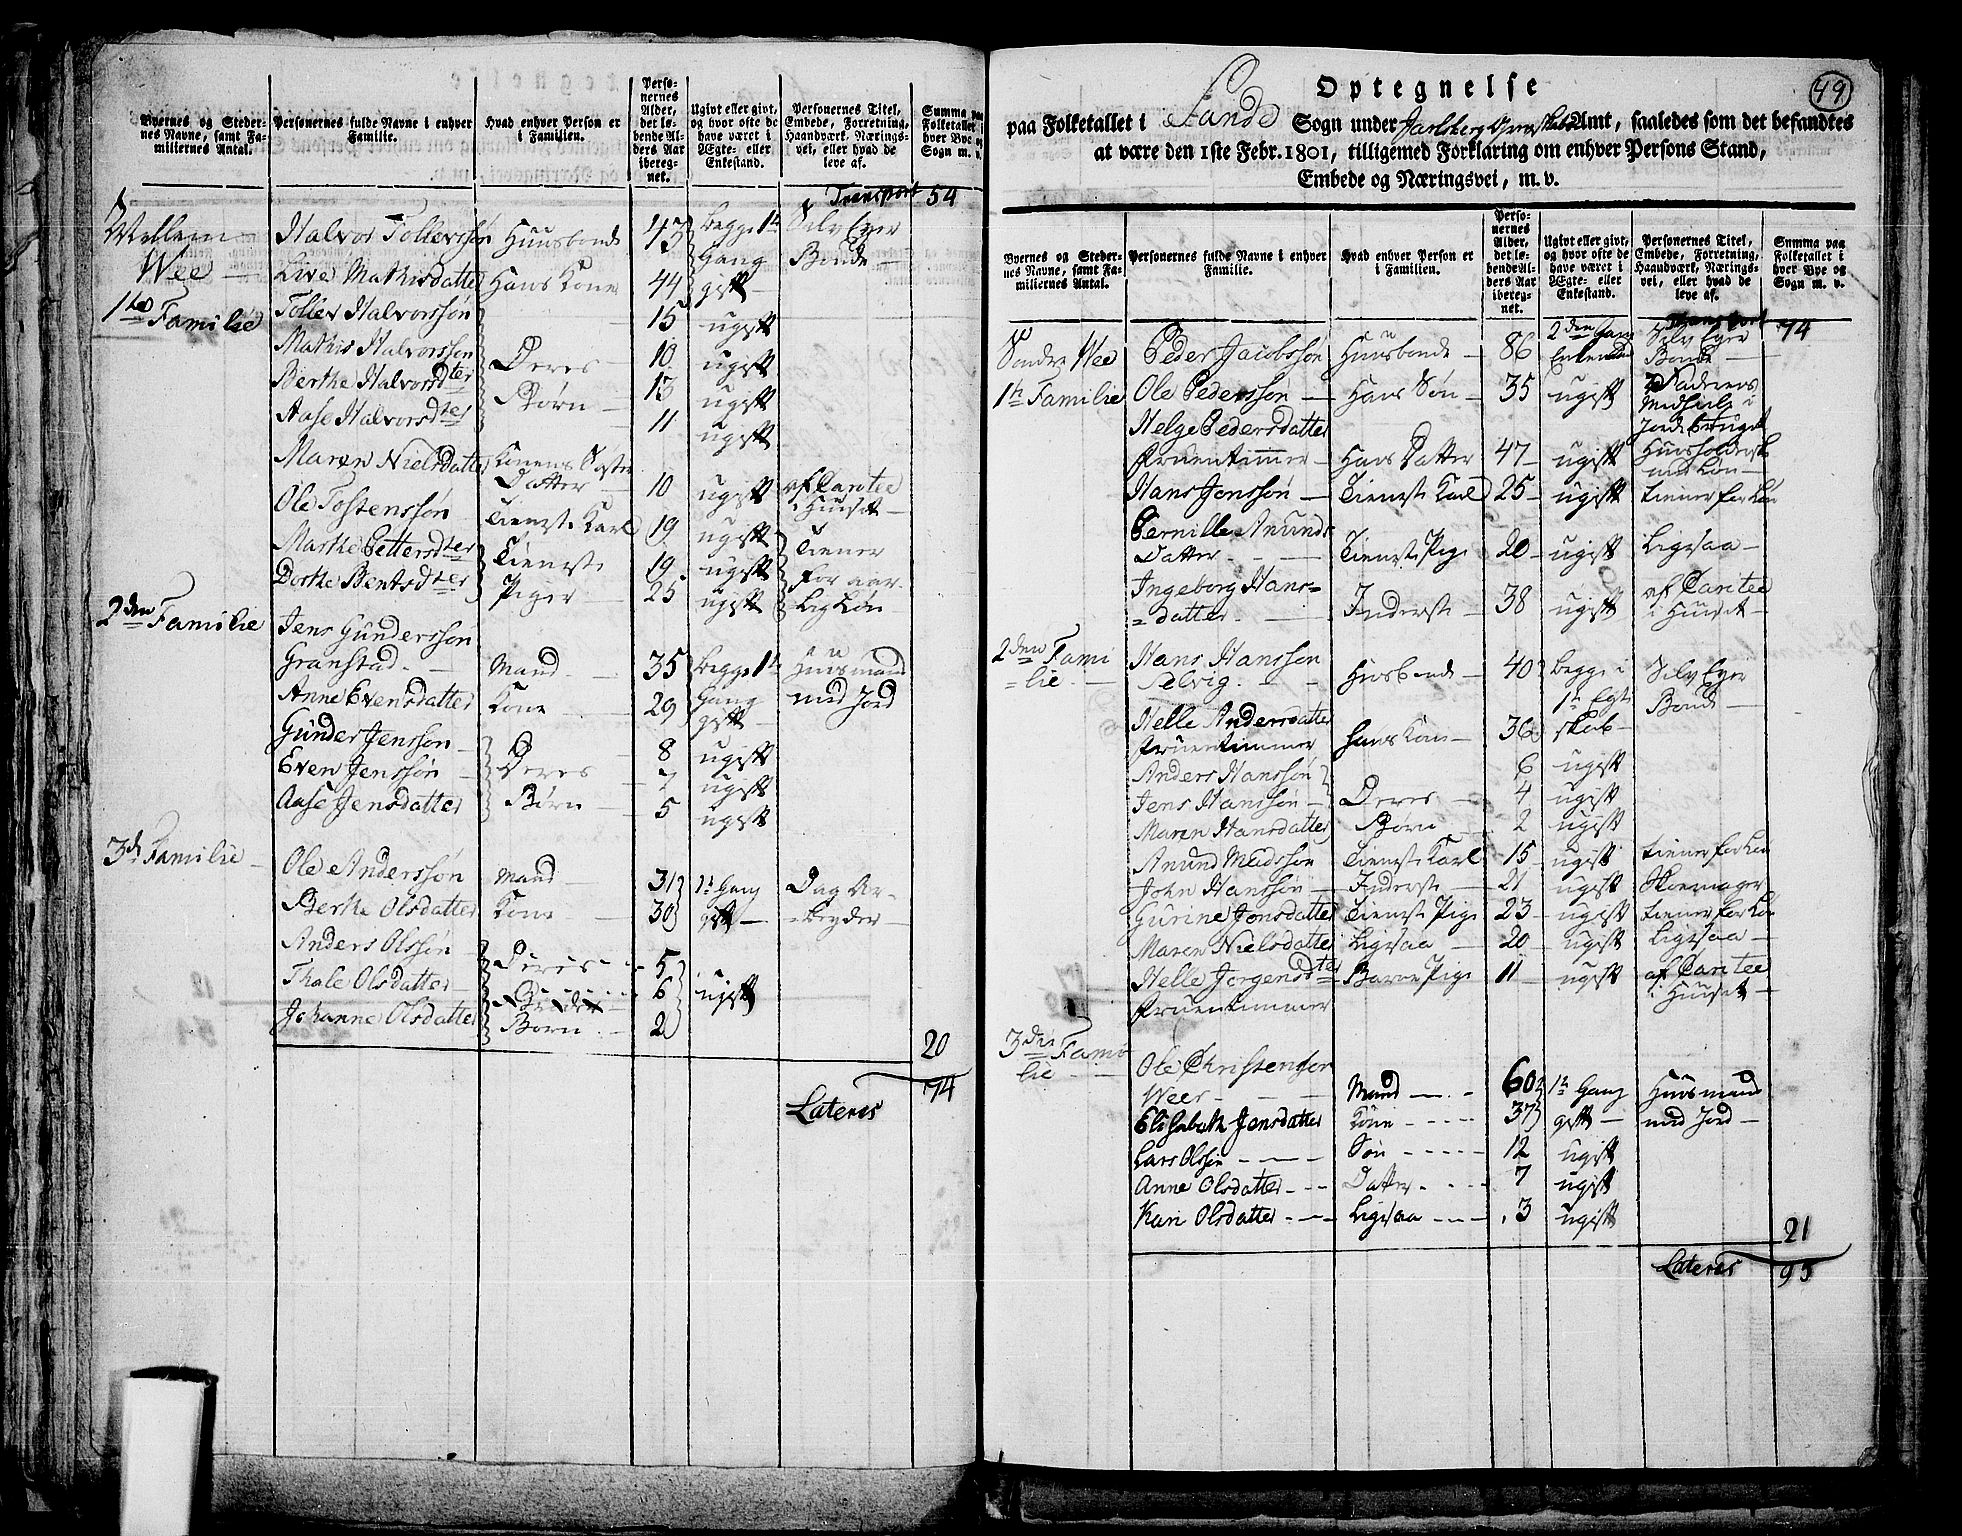 Byernes og Steder-
nes Navne, samt Fa-
miliernes Antal.
Personernes fulde Navne i enhver
Familie.
Hvad enhver Person er
i Familien.
Perso-
nernes
Alder,
det lø-
bende Al-
ders Aar
ibereg-
net.
Ugivt eller givt,
og hvor ofte de
have været i
Ægte- eller
Enkestand.
Personernes Titel,
Embede, Forretning,
Haandværk, Nærings-
vei, eller hvad de
leve af.
Summa paa
Folketallet i
hver Bye og
Sogn m. v.
Transport 54
Mellem Halvor Tollefssøn Huusbonde 43 begge 1te Selv Eyer
Wee Live Mathisdatter Hans Kone 44 Gang Bonde
gift
1te Familie Tollef Halvorssøn 15 ugift
Mathis Halvorssøn Deres 10 ugift
Berthe Halvorsdter Børn 13 ugift
Aase Halvorsdter 11 ugift
Maren Nielsdatter Konens Søster
Datter 10 ugift af Caritee
i Huuset
Ole Tostenssøn Tieneste Karl 19 ugift
Marthe Pettersdter Tieneste 19 ugift Tiener
Dorthe Bentsdter Piger 25 ugift for aar-
lig Løn
2den Familie Jens Gunderssøn
Granstad Mand 35 begge 1te Huusmand
Anne Evensdatter Kone 29 Gang med Jord
gift
Gunder Jenssøn Deres 8 ugift
Even Jenssøn Børn 7 ugift
Aase Jensdatter 5 ugift
3die Familie Ole Anderssøn Mand 31 1te Gang Dag Ar-
Berthe Olsdatter Kone 30 gift beyder
Anders Olssøn Deres 5
Thale Olsdatter 6 ugift
Johanne Olsdatter Børn 2
20
Lateres 74
49
Optegnelse
paa Folketallet i Sande Sogn under Jarlsberg Grevskabs Amt, saaledes som det befandtes
at være den 1ste Febr. 1801, tilligemed Forklaring om enhver Persons Stand,
Embede og Næringsvei, m. v.
Byernes og Steder-
nes Navne, samt Fa-
miliernes Antal.
Personernes fulde Navne i enhver
Familie.
Hvad enhver Person er
i Familien.
Perso-
nernes
Alder,
det lø-
bende Al-
ders Aar
ibereg-
net.
Ugivt eller givt,
og hvor ofte de
have været i
Ægte- eller
Enkestand.
Personernes Titel,
Embede, Forretning,
Haandværk, Nærings-
vei, eller hvad de
leve af.
Summa paa
Folketallet i
hver Bye og
Sogn m. v.
Transport 74
Søndre Wee Peder Jacobssøn Huusbonde 86 2den Gang Selv Eyer
Enkemand Bonde
1te Familie Ole Pederssøn Hans Søn 35 ugift Faderens
Medhielp i
Jordbruget
Helge Pedersdatter
fruentimmer Hans Datter 47 ugift Huusholderske
uden Løn
Hans Jonssøn Tieneste Karl 25 ugift tiener for Løn
Pernille Anunds
Datter Tieneste Pige 20 ugift Ligesaa
Ingeborg Hans-
datter Inderste 38 ugift af Caritee
i Huuset
2den Fami
lie Hans Hanssøn
Selvig Husbonde 40 begge i Selv Eyer
1te Egte Bonde
Helle Andersdatter
fruentimmer hans Kone 36 skab
Anders Hanssøn 6 ugift
Jens Hanssøn Deres 4 ugift
Maren Hansdatter Børn 2 ugift
Anund Madssøn Tieneste Karl 15 ugift tiener for Løn
John Hanssøn Inderste 21 ugift Skoemager
Gurine Jonsdatter Tieneste Pige 23 ugift tiener for Løn
Maren Nielsdatter Ligesaa 20 ugift Ligesaa
Helle Jorgensdter Barne Pige 11 ugift af Caritee
fruentimmer i Huuset
3die Fami
lie Ole Christenssøn
Weer Mand 60 1te Gang Huusmand
Elisabeth Jensdatter Kone 37 gift med Jord
Lars Olssøn Søn 12 ugift
Anne Olsdatter Datter 7 ugift
Kari Olsdatter Ligesaa 3 ugift
21
Lateres 95